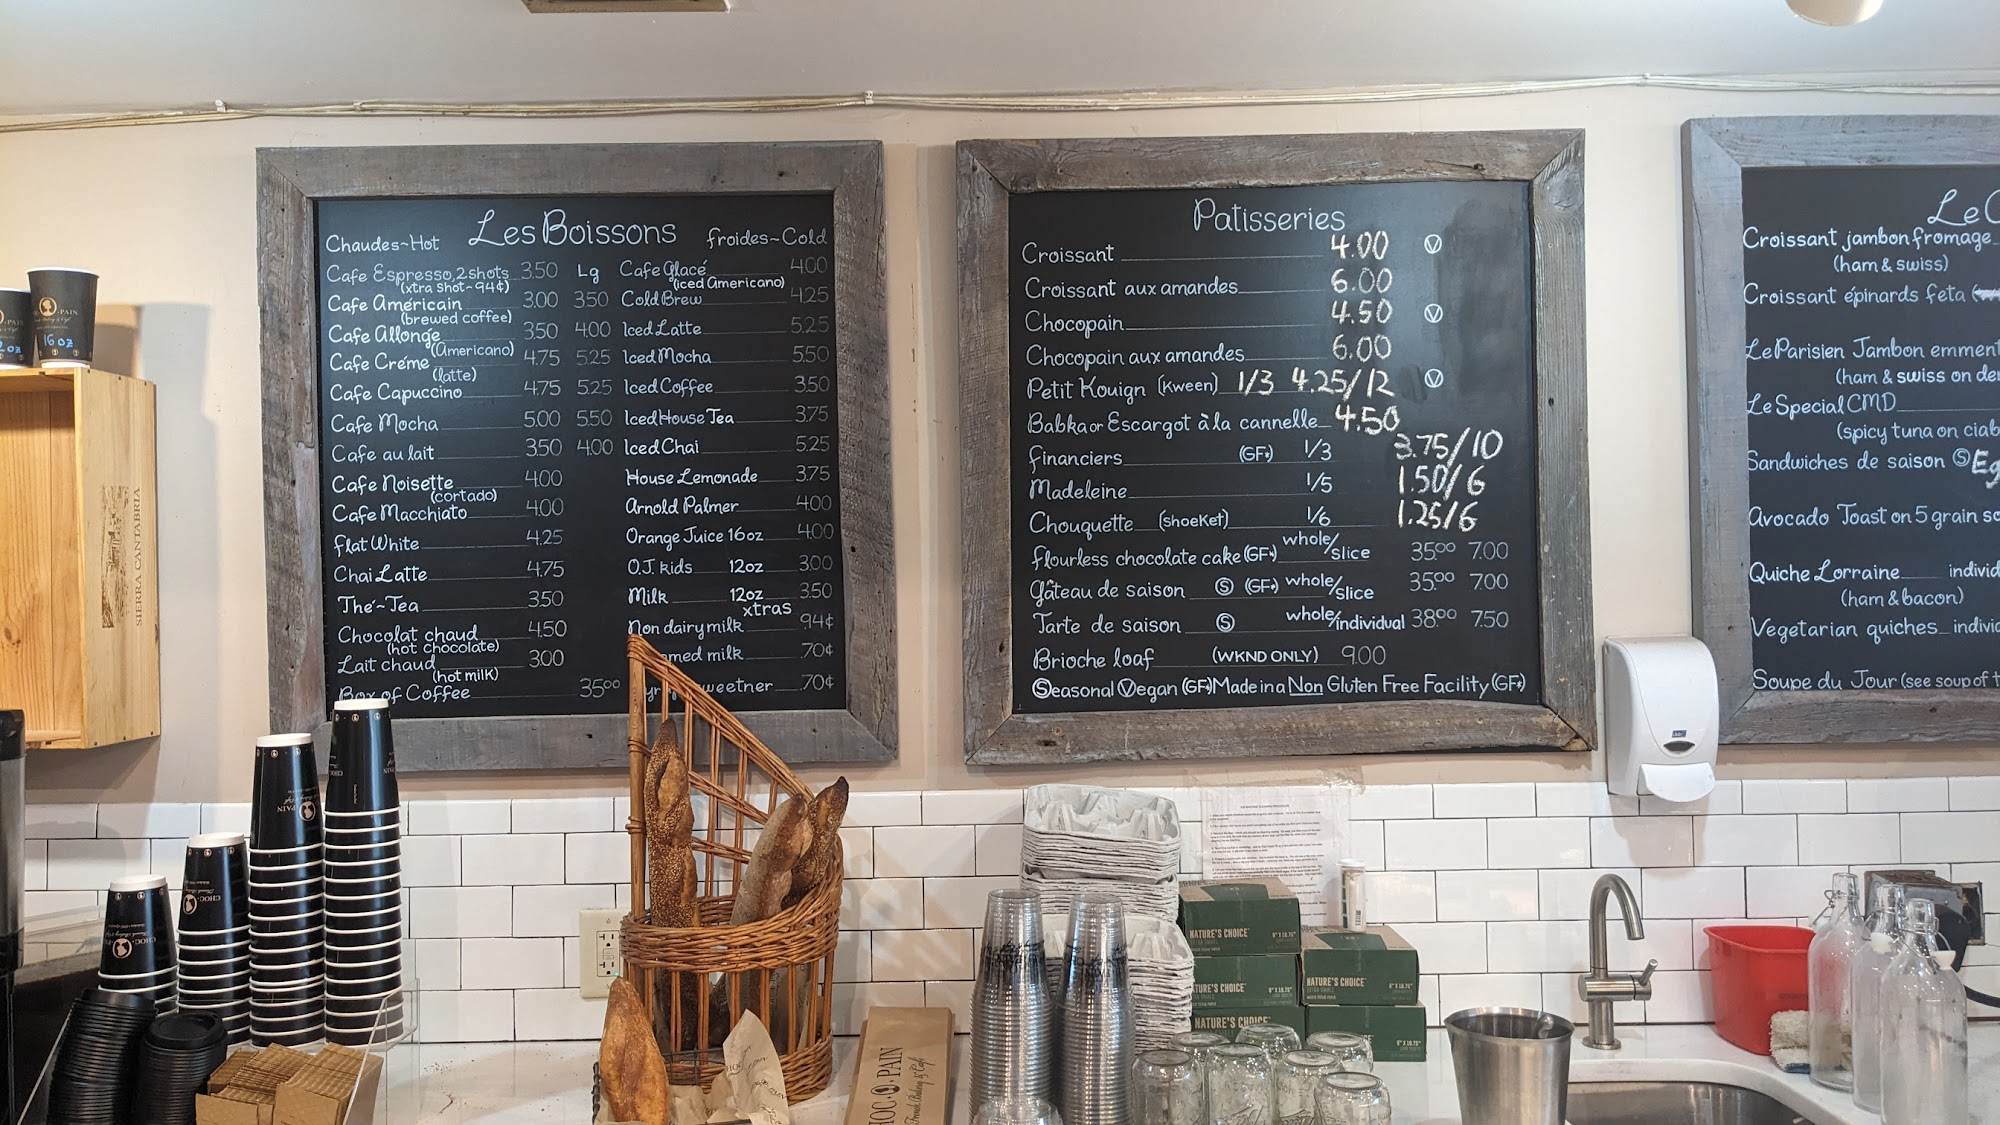 Les Boissons
Chaudes~Hot
Cafe Espresso, 2shots 3.50 Lg
(xtra shot-94¢)
Cafe Américain 3.00 3.50
(brewed coffee)
Cafe Allongé 3.50 4.00
(Americano)
Cafe Créme 4.75 5.25
(latte)
Cafe Capuccino 4.75 5.25
Cafe Mocha 5.00 5.50
Cafe au lait 3.50 4.00
Cafe Noisette 4.00
(cortado)
Cafe Macchiato 4.00
flat White 4.25
Chai Latte 4.75
Thé~Tea 3.50
Chocolat chaud 4.50
(hot chocolate)
Lait chaud 3.00
(hot milk)
Box of Coffee 35.00
froides~Cold
Cafe Glacé 4.00
(iced Americano)
Cold Brew 4.25
Iced Latte 5.25
Iced Mocha 5.50
Iced Coffee 3.50
Iced House Tea 3.75
Iced Chai 5.25
House Lemonade 3.75
Arnold Palmer 4.00
Orange Juice 16oz 4.00
O.J. kids 12oz 3.00
Milk 12oz 3.50
xtras
Non dairy milk 94¢
milk .70¢
.70¢
Patisseries
Croissant 4.00 Ⓥ
Croissant aux amandes 6.00
Chocopain 4.50 Ⓥ
Chocopain aux amandes 6.00
Petit Kouign (Kween) 1/3 4.25/12 Ⓥ
Babka or Escargot à la cannelle 4.50
financiers (GF*) 1/3 3.75/10
Madeleine 1/5 1.50/6
Chouquette (shoeKet) 1/6 1.25/6
flourless chocolate cake (GF*) whole/slice 35.00 7.00
Gâteau de saison Ⓢ (GF*) whole/slice 35.00 7.00
Tarte de saison Ⓢ whole/individual 38.00 7.50
Brioche loaf (WKND ONLY) 9.00
Ⓢeasonal Ⓥegan (GF*) Made in a Non Gluten Free Facility (GF*)
Le
Croissant jambon fromage
(ham & swiss)
Croissant épinards feta
Le Parisien Jambon
(ham & swiss on
Le Special CMD
(spicy tuna on
Sandwiches de saison Ⓢ
Avocado Toast on 5 grain
Quiche Lorraine
(ham & bacon)
Vegetarian quiches
Soupe du Jour (see soup of
SIERRA CANTABRIA
16 oz
PAIN
CHOC PAIN
French Bakery & Café
NATURE'S CHOICE
NATURE'S CHOICE
NATURE'S CHOICE
NATURE'S CHOICE